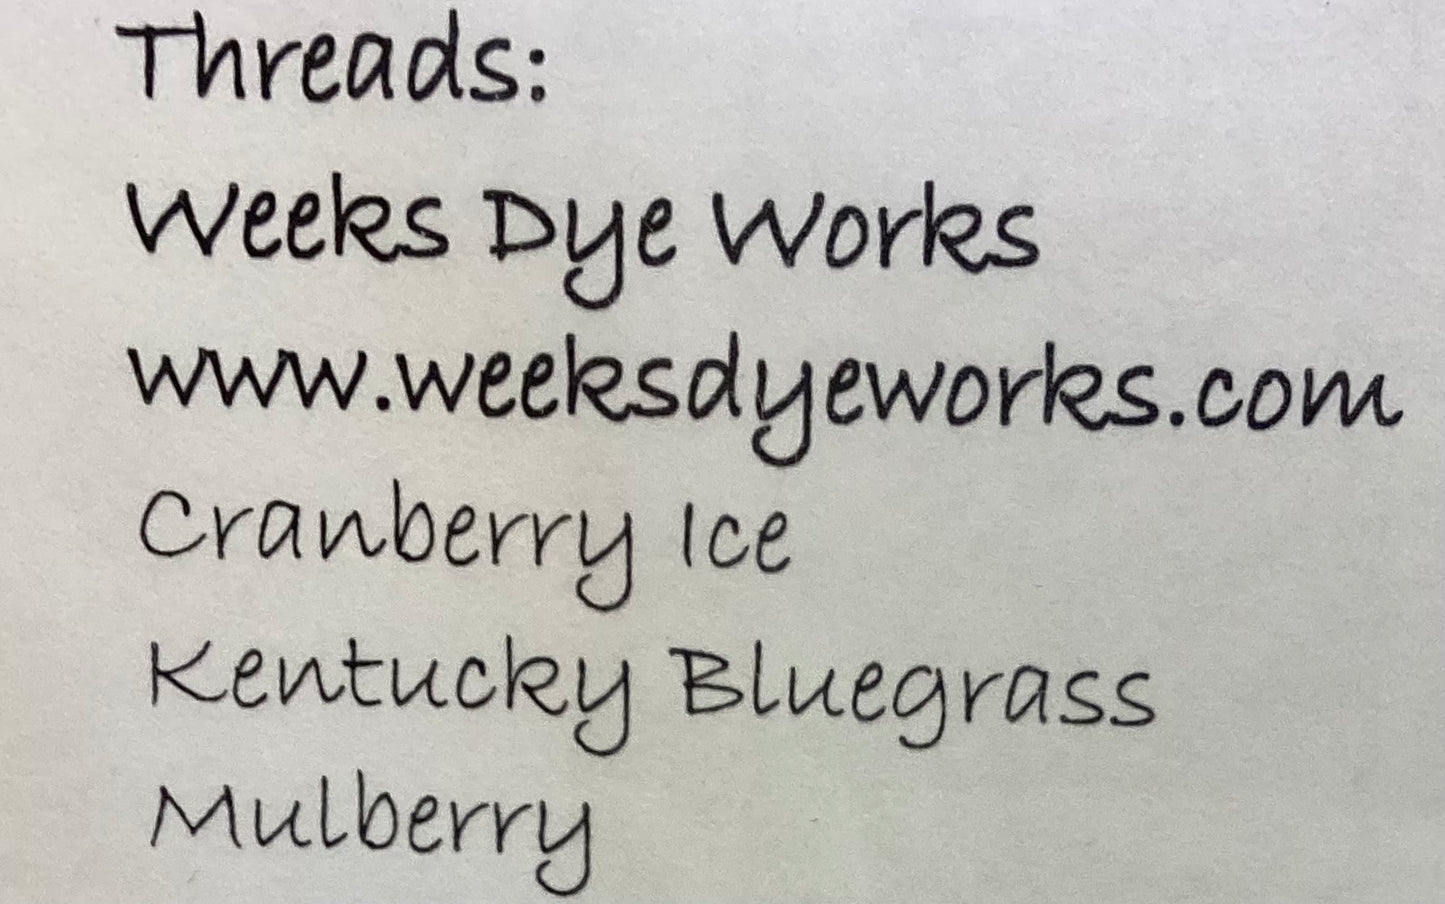 Threads:
Weeks Dye Works
www.weeksdyeworks.com
Cranberry Ice
Kentucky Bluegrass
Mulberry